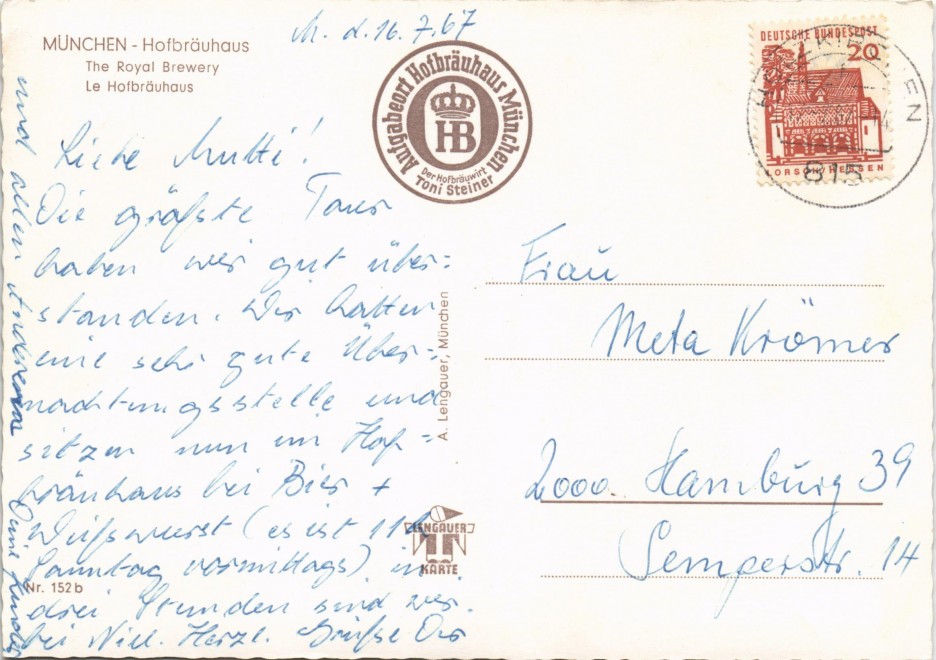 MÜNCHEN - Hofbräuhaus
The Royal Brewery
Le Hofbräuhaus
M. d. 16.7.67
Ausgabeort Hofbräuhaus München
HB
Der Hofbräuwirt
Toni Steiner
DEUTSCHE BUNDESPOST
20
LORSCH/HESSEN
815
Liebe Mutti!
Die größte Tour
haben wir gut über=
standen. Wir hatten
eine sehr gute Über=
nachtungsstelle und
sitzen nun im Hof=
bräuhaus bei Bier +
Weißwurst (es ist 11h
Sonntag vormittags) in
drei Stunden sind wir
bei Herzl. Grüße Dir
und allen Anderen
Deine Kinder
A. Lengauer, München
LENGAUER
KARTE
Nr. 152 b
Frau
Meta Krömer
2000 Hamburg 39
Semperstr. 14